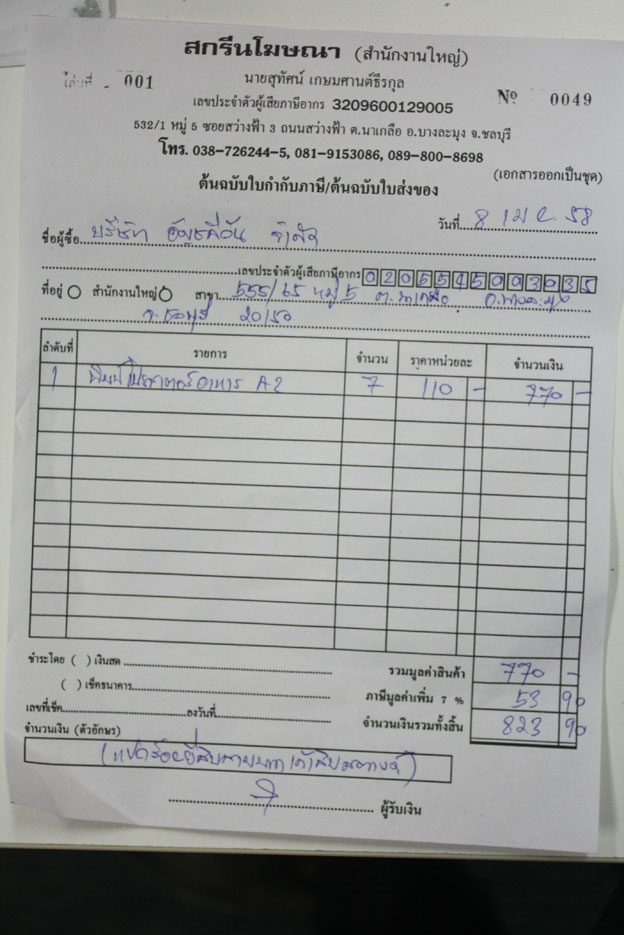 สกรีนโฆษณา (สำนักงานใหญ่)
นายสุทัศน์ เกษมศานต์ธีรกุล
เล่มที่ 001 № 0049
เลขประจำตัวผู้เสียภาษีอากร 3209600129005
532/1 หมู่ 5 ซอยสว่างฟ้า 3 ถนนสว่างฟ้า ต.นาเกลือ อ.บางละมุง จ.ชลบุรี
โทร. 038-726244-5, 081-9153086, 089-800-8698
(เอกสารออกเป็นชุด)
ต้นฉบับใบกำกับภาษี/ต้นฉบับใบส่งของ
วันที่ 8 เม.ย. 58
ชื่อผู้ซื้อ บริษัท จำกัด
เลขประจำตัวผู้เสียภาษีอากร 0205545003035
ที่อยู่ สำนักงานใหญ่ สาขา 555/65 หมู่ 5 ต.นาเกลือ อ.บางละมุง
จ.ชลบุรี 20150
ลำดับที่ รายการ จำนวน ราคาหน่วยละ จำนวนเงิน
1 พิมพ์โปสเตอร์อาหาร A2 7 110 - 770 -
ชำระโดย ( ) เงินสด รวมมูลค่าสินค้า 770 -
( ) เช็คธนาคาร ภาษีมูลค่าเพิ่ม 7 % 53 90
เลขที่เช็ค ลงวันที่ จำนวนเงินรวมทั้งสิ้น 823 90
จำนวนเงิน (ตัวอักษร)
(แปดร้อยยี่สิบสามบาทเก้าสิบสตางค์)
ผู้รับเงิน